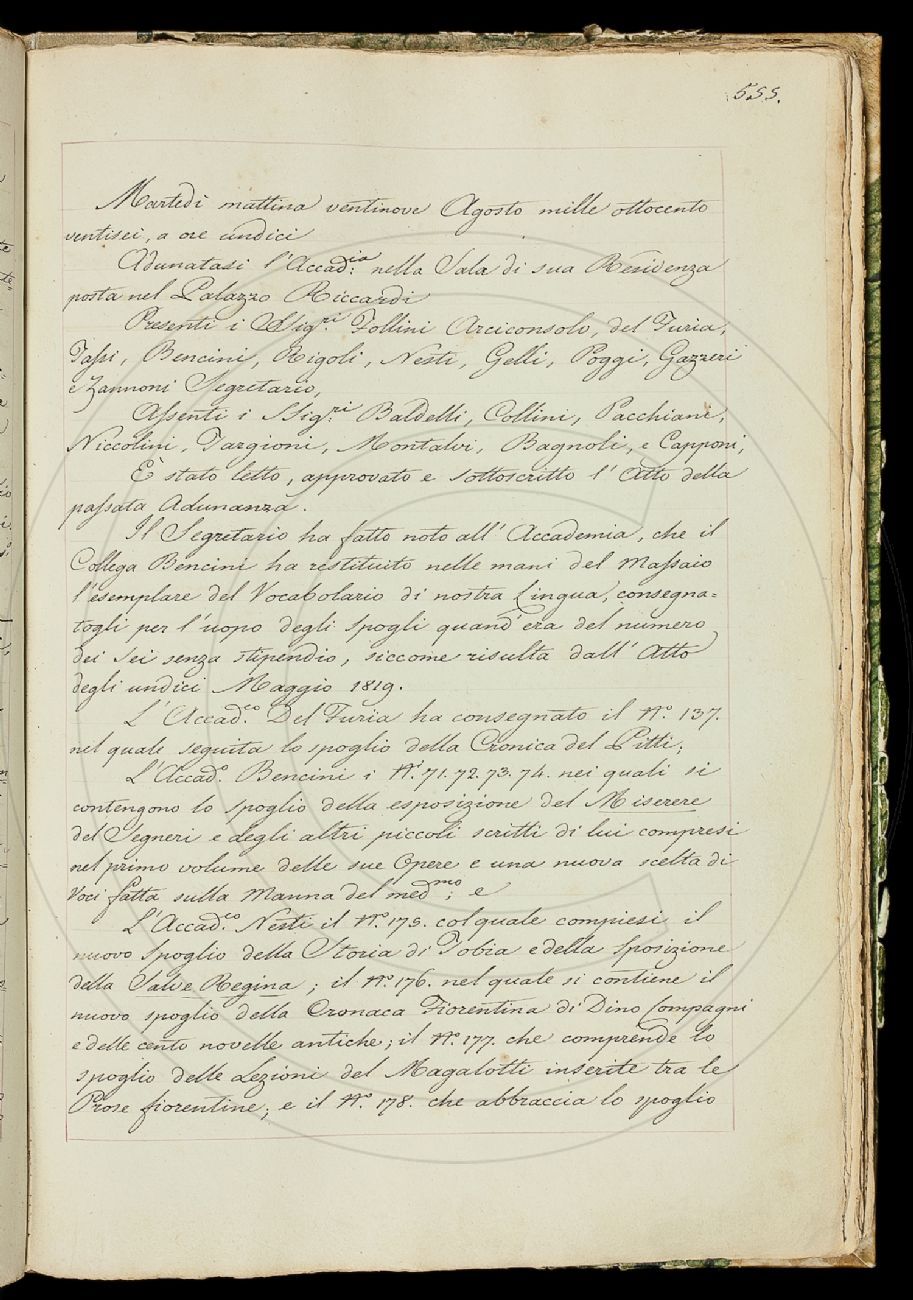 555.
Martedì mattina ventinove Agosto mille ottocento
ventisei, a ore undici
Adunatasi l'Accad.ia nella Sala di sua Residenza
posta nel Palazzo Riccardi
Presenti i SSig.ri Follini Arciconsolo, del Furia,
Tassi, Bencini, Rigoli, Nesti, Gelli, Poggi, Gazzeri
e Zannoni Segretario,
Assenti i SSig.ri Baldelli, Collini, Pacchiani,
Niccolini, Targioni, Montalvi, Bagnoli, e Capponi,
È stato letto, approvato e sottoscritto l'Atto della
passata Adunanza.
Il Segretario ha fatto noto all'Accademia, che il
Collega Bencini ha restituito nelle mani del Massaio
l'esemplare del Vocabolario di nostra Lingua, consegna=
togli per l'uopo degli spogli quand'era del numero
dei sei senza stipendio, siccome risulta dall'Atto
degli undici Maggio 1819.
L'Accad.co Del Furia ha consegnato il N.o 137.
nel quale seguita lo spoglio della Cronica del Pitti;
L'Accad.o Bencini i N.i 71. 72. 73. 74. nei quali si
contengono lo spoglio della esposizione del Miserere
del Segneri e degli altri piccoli scritti di lui compresi
nel primo volume delle sue Opere e una nuova scelta di
Voci fatta sulla Manna del med.mo; e
L'Accad.co Nesti il N.o 175. col quale compiesi il
nuovo spoglio della Storia di Tobia e della Sposizione
della Salve Regina; il N.o 176. nel quale si contiene il
nuovo spoglio della Cronaca Fiorentina di Dino Compagni
e delle cento novelle antiche; il N.o 177. che comprende lo
spoglio delle Lezioni del Magalotti inserite tra le
Prose fiorentine; e il N.o 178. che abbraccia lo spoglio